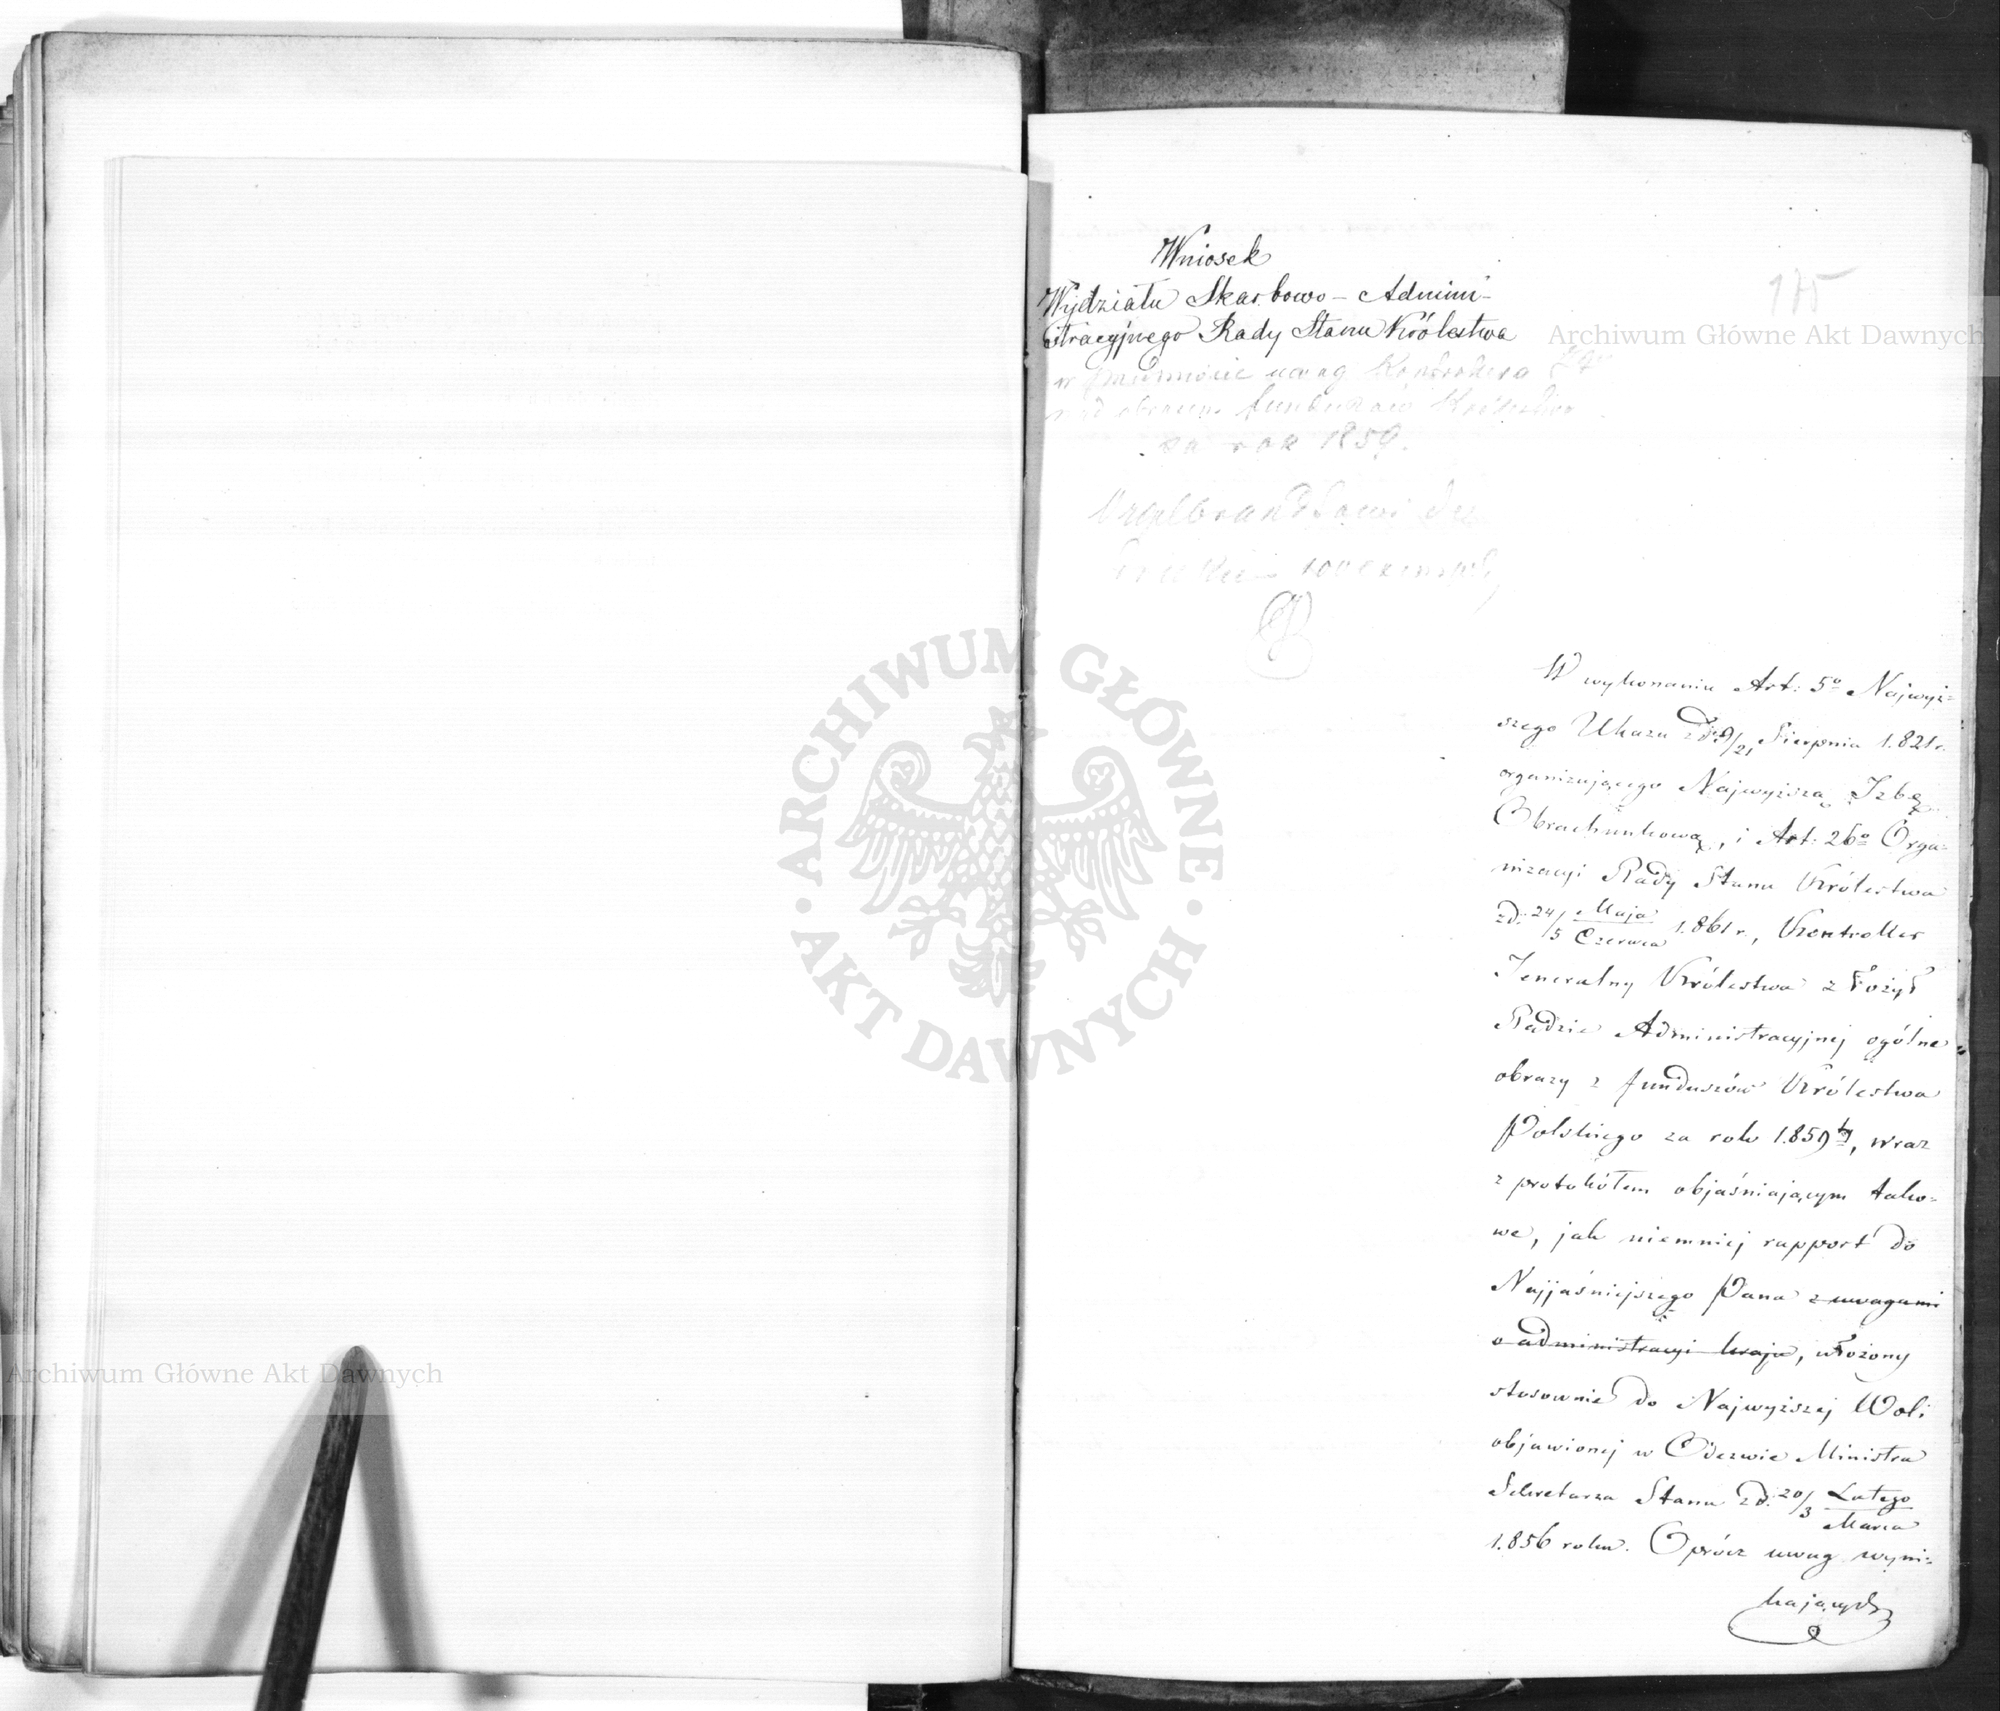 175
Wniosek
Wydziału Skarbowo - Admini-
stracyjnego Rady Stanu Królestwa
w przedmiocie uwag Kontrolera
nad obrazem funduszów Królestwa
za rok 1859.
W wykonaniu Art: 5º Najwyż-
szego Ukazu z d: 9/21 Sierpnia 1.821 r.
organizującego Najwyższą Izbę
Obrachunkową, i Art: 26º Orga-
nizacyi Rady Stanu Królestwa
z d: 24 Maja / 5 Czerwca 1.861 r., Kontroller
Jeneralny Królestwa złożył
Radzie Administracyjnej ogólne
obrazy z funduszów Królestwa
Polskiego za rok 1.859ty, wraz
z protokółem objaśniającym tako-
we, jak niemniej rapport do
Najjaśniejszego Pana z uwagami
o administracyi kraju, ułożony
stosownie do Najwyższej Woli
objawionej w Odezwie Ministra
Sekretarza Stanu z d: 20 Lutego / 3 Marca
1.856 roku. Oprócz uwag wyni-
kających
Archiwum Główne Akt Dawnych
Archiwum Główne Akt Dawnych
ARCHIWUM GŁÓWNE
AKT DAWNYCH